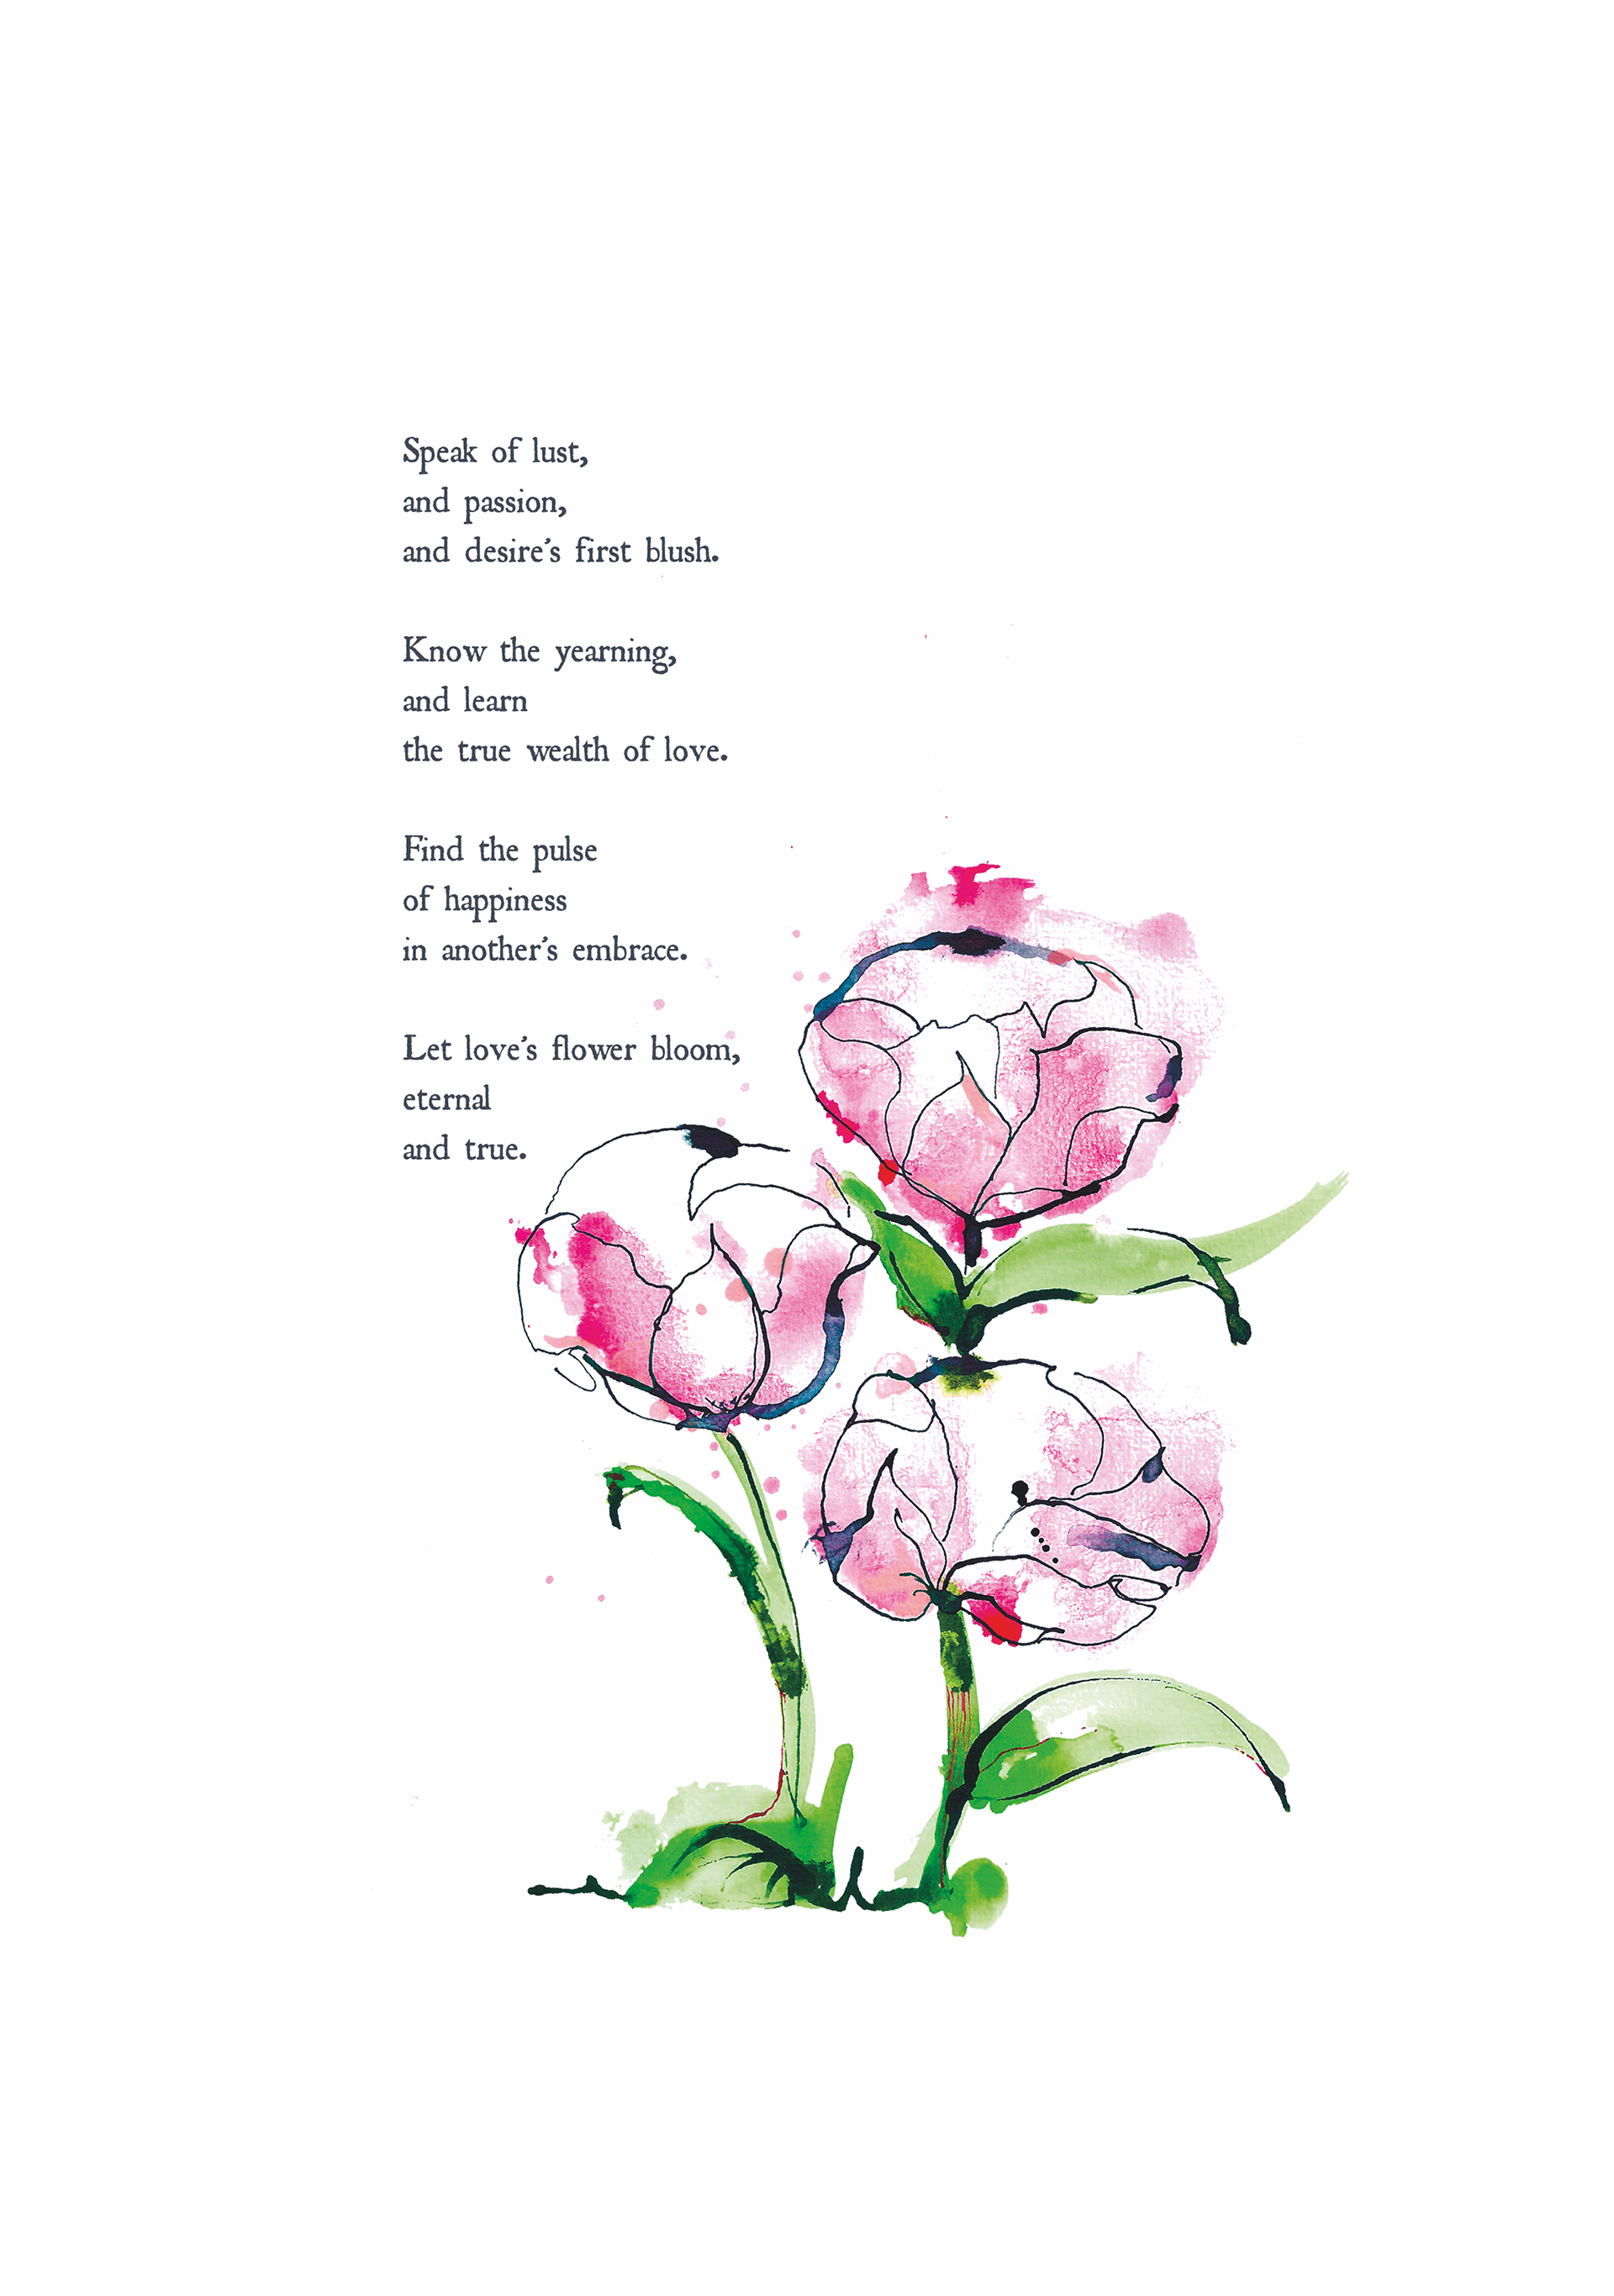 Speak of lust,
and passion,
and desire's first blush.
Know the yearning,
and learn
the true wealth of love.
Find the pulse
of happiness
in another's embrace.
Let love's flower bloom,
eternal
and true.